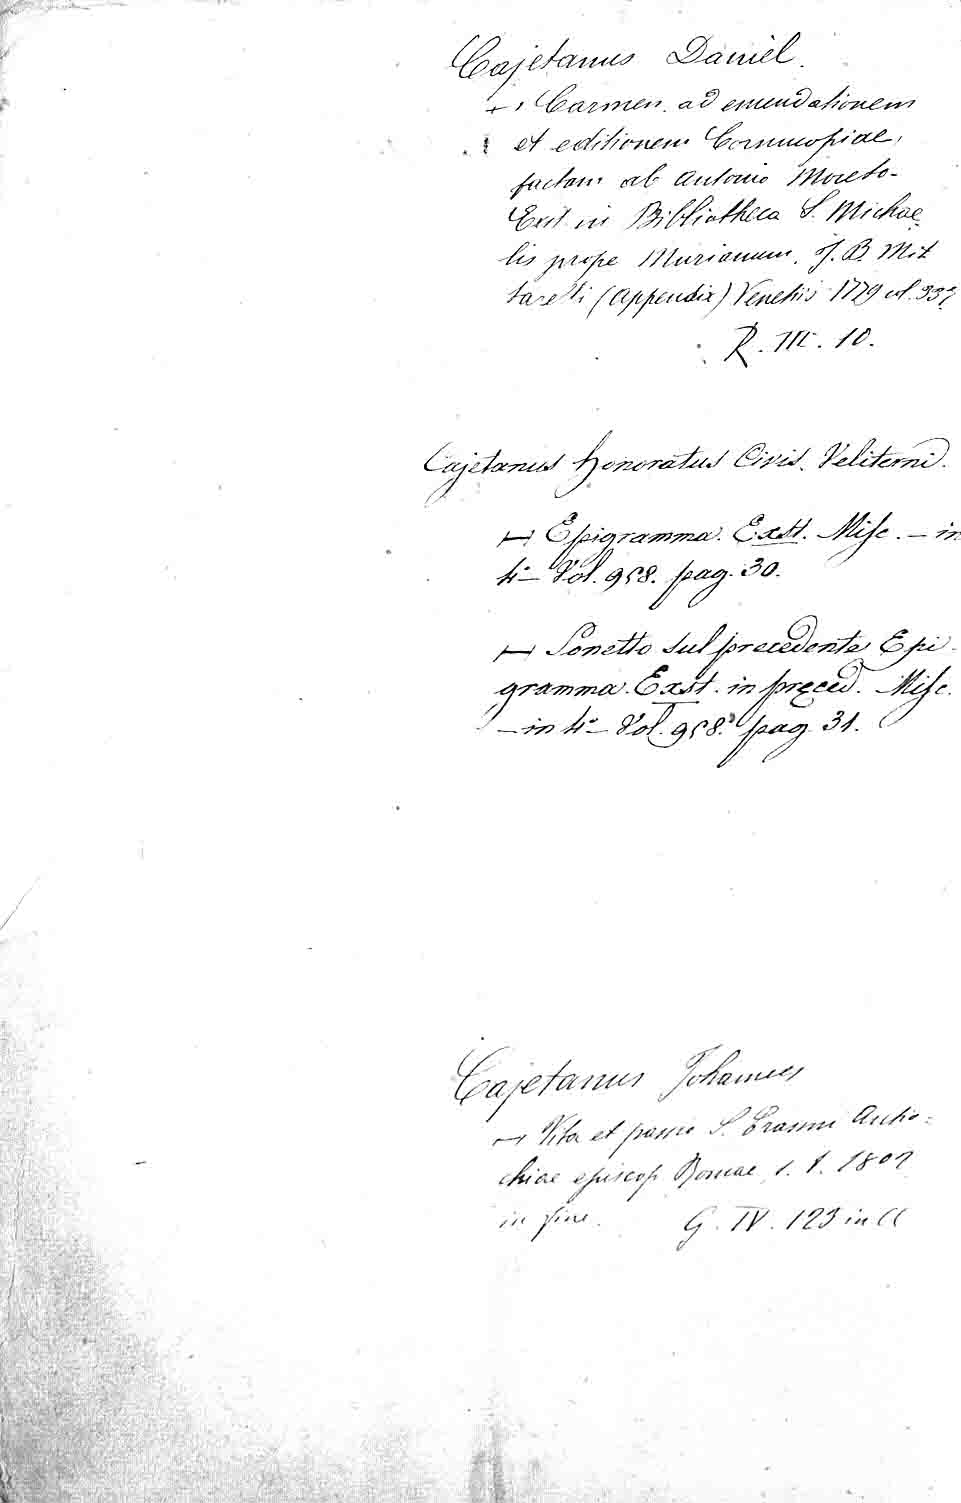 Cajetanus Daniel.
Carmen ad emendationem
et editionem Cornucopiae,
factam ab Antonio Moreto-
Exit in Bibliotheca S. Michae-
lis prope Murianum, J. B. Mit
tarelli (Appendix) Venetiis 1779 col.
R. III. 10.
Cajetanus Honoratus Civis. Veliterni.
Epigramma. Exstt. Misc. - in
4° - Vol. 958. pag. 30.
Sonetto sul precedente Epi-
gramma. Exst. in preced. Misc.
- in 4° - Vol. 958. pag. 31.
Cajetanus Johannes
Vita et passio S. Erasmi Antio-
chiae episcop. Romae
in fine. G. IV. 123 in